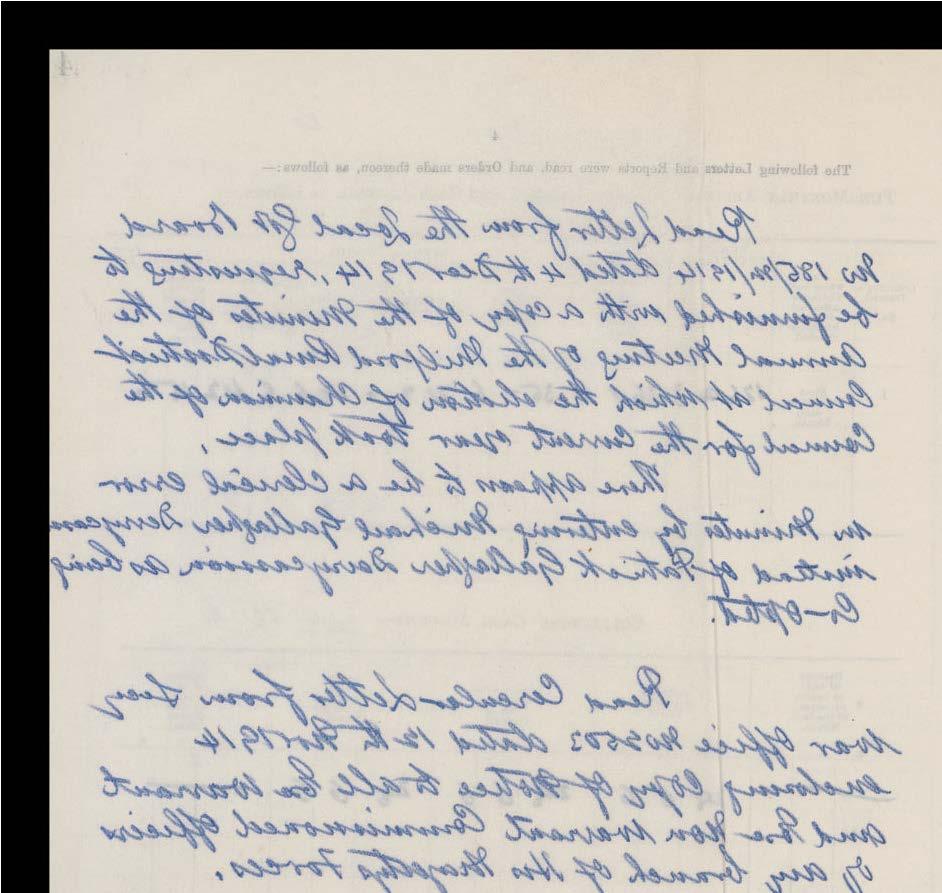 4.
4
The following Letters and Reports were read, and Orders made thereon, as follows:—
Read Letter from the Local Gov Board
No 185/ /1914 dated 4th Decr 1914, requesting to
be furnished with a copy of the Minutes of the
Annual Meeting of the Milford Rural District
Council at which the election of Chairman of the
Council for the Current year took place.
There appears to be a clerical error
in Minutes by entering Michael Gallagher
instead of Patrick Gallagher Derrycassion as being
Co-opted.
Read Circular Letter from Secy
War Office No 2503 dated 12th Novr 1914
enclosing Copy of Notice to all Ex Warrant
and Ex Non Warrant Commissioned Officers
of any branch of His Majestys Forces.